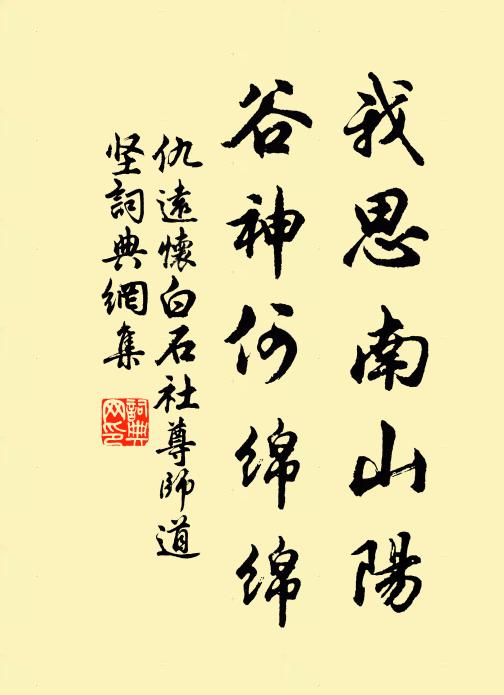 我思南山陽
谷神何绵绵
仇遠懷白石社尊師道
坚詞典網集
詞典
网印